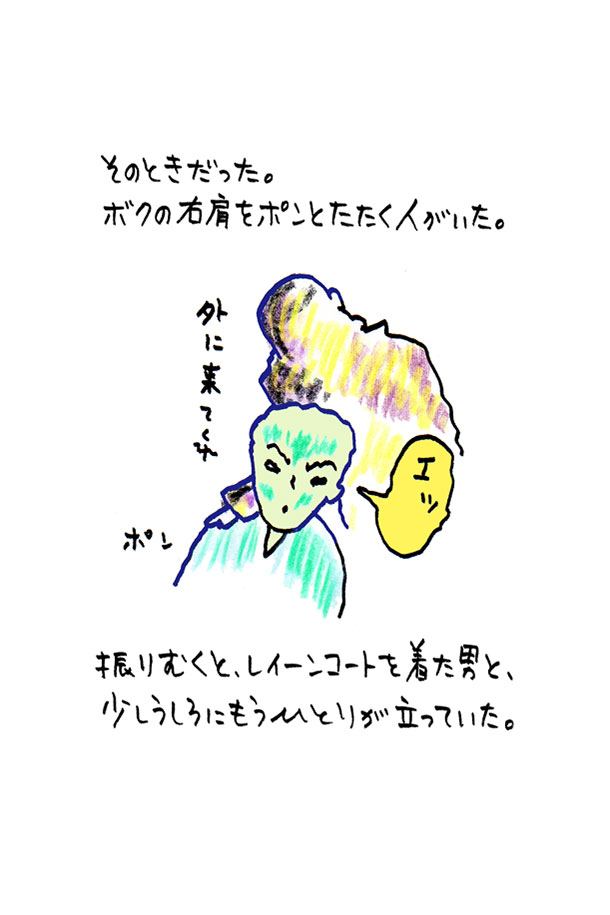 そのときだった。
ボクの右肩をポンとたたく人がいた。
外に来てくれ
エッ
ポン
振りむくと、レイーンコートを着た男と、
少しうしろにもうひとりが立っていた。